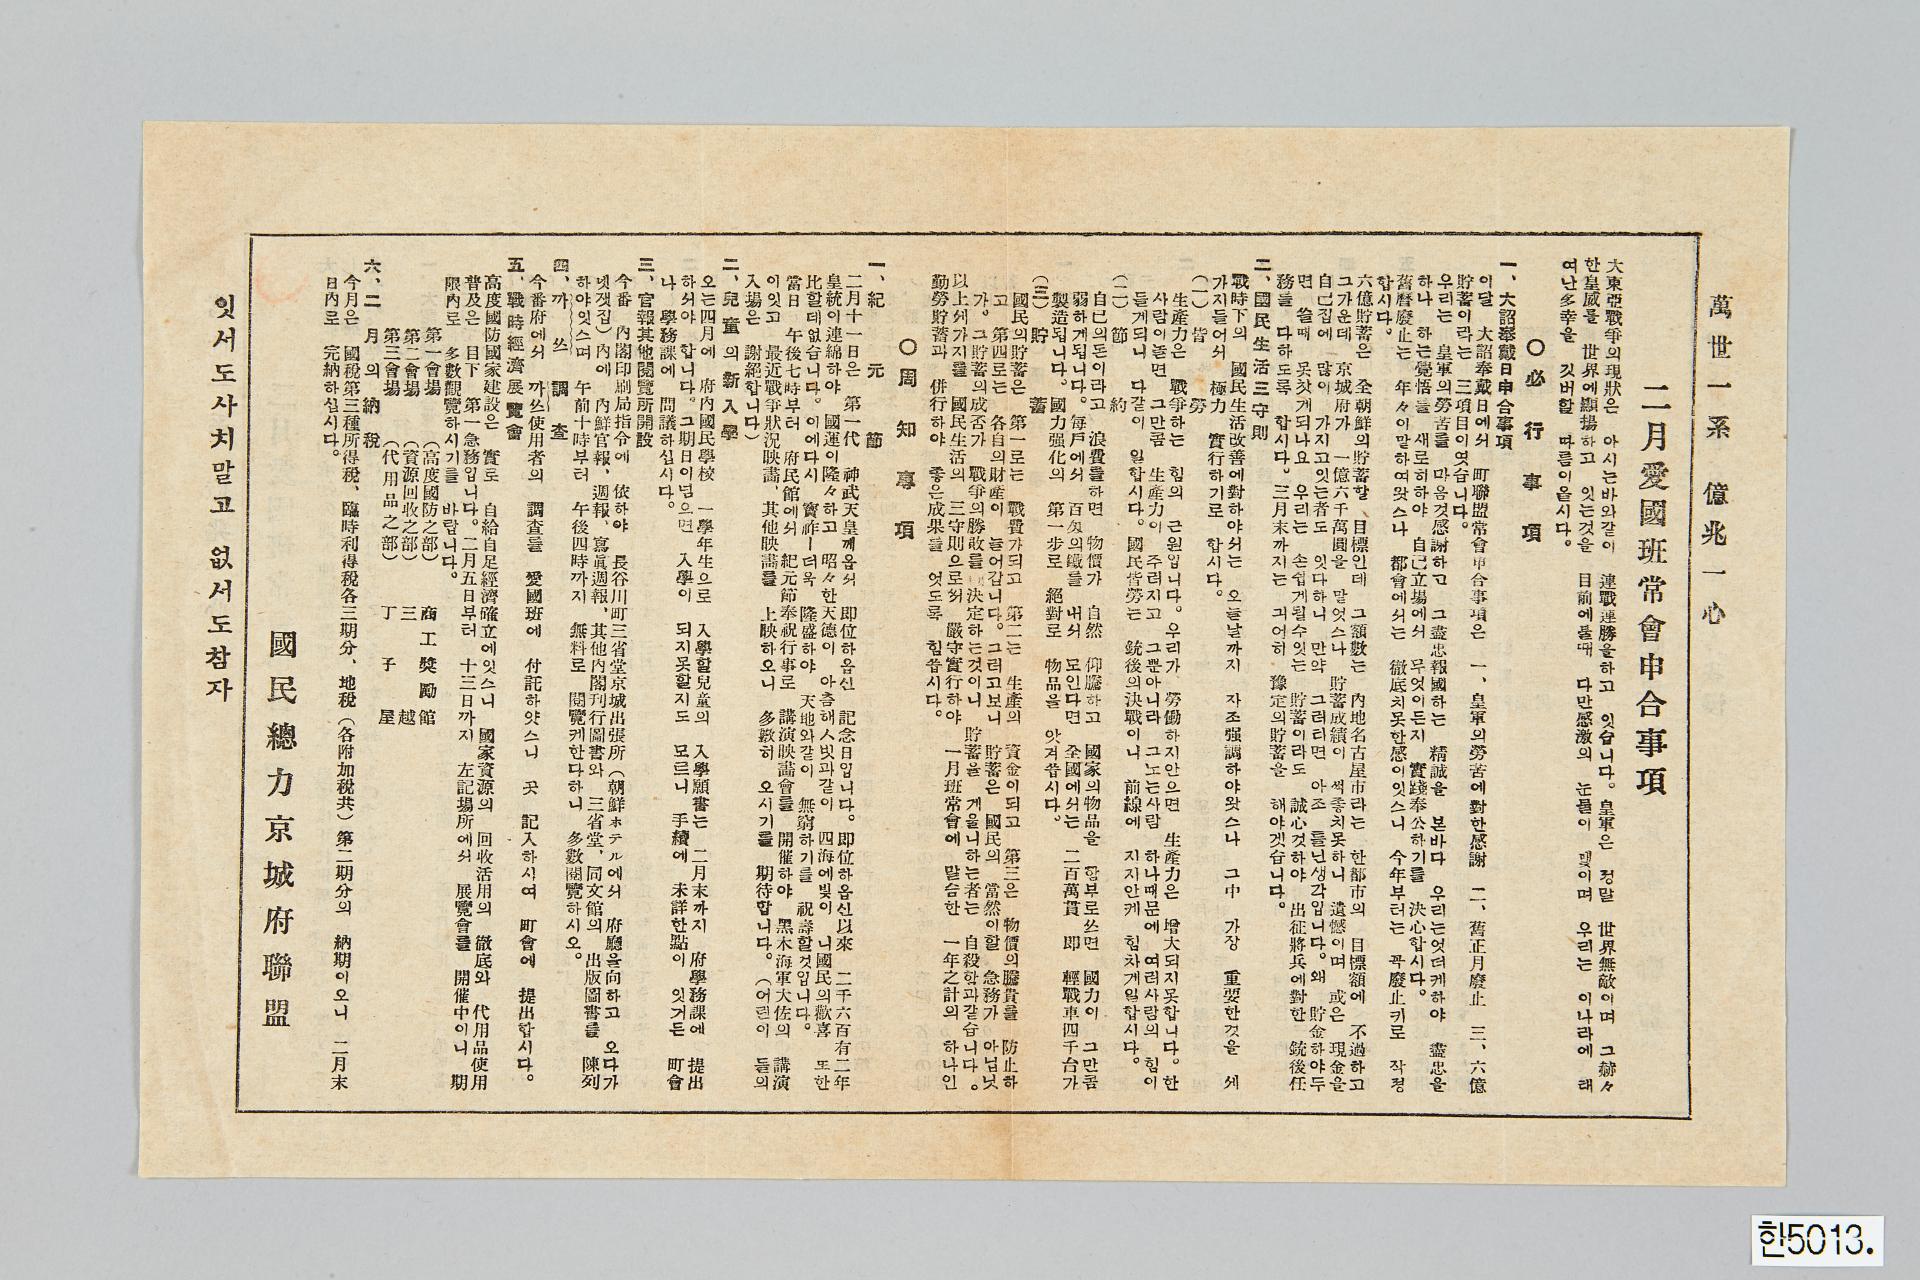 萬世一系 億兆一心
二月愛國班常會申合事項
大東亞戰爭의現狀은 아시는바와갈이 連戰連勝을하고 잇습니다。皇軍은 정말 世界無敵이며 그赫々
한皇威를 世界에顯揚하고 잇는것을 目前에볼때 다만感激의 눈물이 맺이며 우리는 이나라에 태
여난多幸을 깃버할 따름이올시다。
○必行事項
一、大詔奉戴日申合事項
이달 大詔奉戴日에서 町聯盟常會申合事項은 一、皇軍의勞苦에對한感謝 二、舊正月廢止 三、六億
貯蓄이라는 三項目이엿습니다。
우리는 皇軍의勞苦를 마음것感謝하고 그盡忠報國하는 精誠을 본바다 우리는엇더케하야 盡忠을
하나 하는覺悟를 새로히하야 自己立場에서 무엇이든지 實踐奉公하기를 決心합시다。
舊曆廢止는 年々이말하여왓스나 都會에서는 徹底치못한感이잇스니 今年부터는 꼭廢止키로 작정
합시다。
六億貯蓄은 全朝鮮의貯蓄할 目標인데 그額數는 內地名古屋市라는 한都市의 目標額에 不過하고
그가운데 京城府가 一億六千萬圓을 말엇스나 貯蓄成績이 썩좋치못하니 遺憾이며 或은 現金을
自己집에 많이 가지고잇는者도 잇다하니 만약 그러타면 아조 틀닌생각입니다。왜 貯金하야두
면 쓸때 못찻게되나요 우리는 손쉽게될수잇는 貯蓄이라도 誠心것하야 出征將兵에對한 銃後任
務를 다하도록 합시다。三月末까지는 긔어히 豫定의貯蓄을 해야겟습니다。
二、國民生活三守則
戰時下의 國民生活改善에對하야서는 오늘날까지 자조强調하야왓스나 그中 가장 重要한것을 세
가지들어서 極力 實行하기로 합시다。
(一) 皆勞
生產力은 戰爭하는 힘의 근원입니다。우리가 勞働하지안으면 生產力은 增大되지못합니다。한
사람이놀면 그만큼 生產力이 주러지고 그뿐아니라 그노는사람 하나때문에 여러사람의 힘이
들게되니 다갈이 일합시다。國民皆勞는 銃後의決戰이니 前線에 지지안케 힘차게일합시다。
(二) 節約
自己의돈이라고 浪費를하면 物價가 自然 仰騰하고 國家의物品을 함부로쓰면 國力이 그만큼
弱하게됩니다。每戶에서 百匁의鐵를 내서 모인다면 全國에서는 二百萬貫 即 輕戰車四千台가
製造됩니다。國力强化의 第一步로 絕對로 物品을 앗겨씁시다。
(三) 貯蓄
國民의貯蓄은 第一로는 戰費가되고 第二는 生產의 資金이되고 第三은 物價의騰貴를 防止하
고 第四로는 各自의財產이 늘어갑니다。그러고보니 貯蓄은 國民의 當然이할 急務가 아닙닛
가。그貯蓄의成否가 戰爭의勝敗를 決定하는것이니 貯蓄을 게을니하는者는 自殺함과갈습니다。
以上세가지를 國民生活의 三守則으로써 嚴守實行하야 一月班常會에 말슴한 一年之計의 하나인
勤勞貯蓄과 併行하야 좋은成果를 엇도록 힘씁시다。
○周知事項
一、紀元節
二月十一日은 第一代 神武天皇께옵서 即位하옵신 記念日입니다。即位하옵신以來 二千六百有二年
皇統이連綿하야 國運이隆々하고 昭々한天德이 아츰해人빗과갈이 四海에빗이 니國民의歡喜 또한
比할데없습니다。이에다시 寶祚—더욱 隆盛하야 天地와갈이 無窮하기를 祝壽할것입니다。
當日 午後七時부터 府民館에서 紀元節奉祝行事로 講演映畵會를 開催하야 黑木海軍大佐의 講演
이잇고 最近戰爭狀況映畵、其他映畵를 上映하오니 多數히 오시기를 期待합니다。(어린이 들의
入場은 謝絕합니다)
二、兒童의新入學
오는四月에 府內國民學校 一學年生으로 入學할兒童의 入學願書는 二月末까지 府學務課에 提出
하서야 합니다。그期日이넘으면 入學이 되지못할지도 모르니 手續에 未詳한點이 잇거든 町會
나 學務課에 問議하십시다。
三、官報其他閱覽所開設
今番 內閣印刷局指令에 依하야 長谷川町三省堂京城出張所(朝鮮ホテル에서 府廳을向하고 오다가
넷잿집)內에 內鮮官報、週報、寫眞週報、其他內閣刊行圖書와 三省堂、同文館의 出版圖書를 陳列
하야잇스며 午前十時부터 午後四時까지 無料로 閱覽케한다하니 多數閱覽하시오。
四、까쓰調査
今番府에서 까쓰使用者의 調査를 愛國班에 付託하얏스니 곳 記入하시여 町會에 提出합시다。
五、戰時經濟展覽會
高度國防國家建設은 實로 自給自足經濟確立에잇스니 國家資源의 回收活用의 徹底와 代用品使用
普及은 目下 第一急務입니다。二月五日부터 十三日까지 左記場所에서 展覽會를 開催中이니 期
限內로 多數觀覽하시기를 바랍니다。
第一會場 (高度國防之部) 商工奬勵館
第二會場 (資源回收之部) 三越
第三會場 (代用品之部) 丁子屋
六、二月의納稅
今月은 國稅第三種所得稅、臨時利得稅各三期分、地稅(各附加稅共)第二期分의 納期이오니 二月末
日內로 完納하십시다。
國民總力京城府聯盟
잇서도사치말고 없서도참자
한5013.